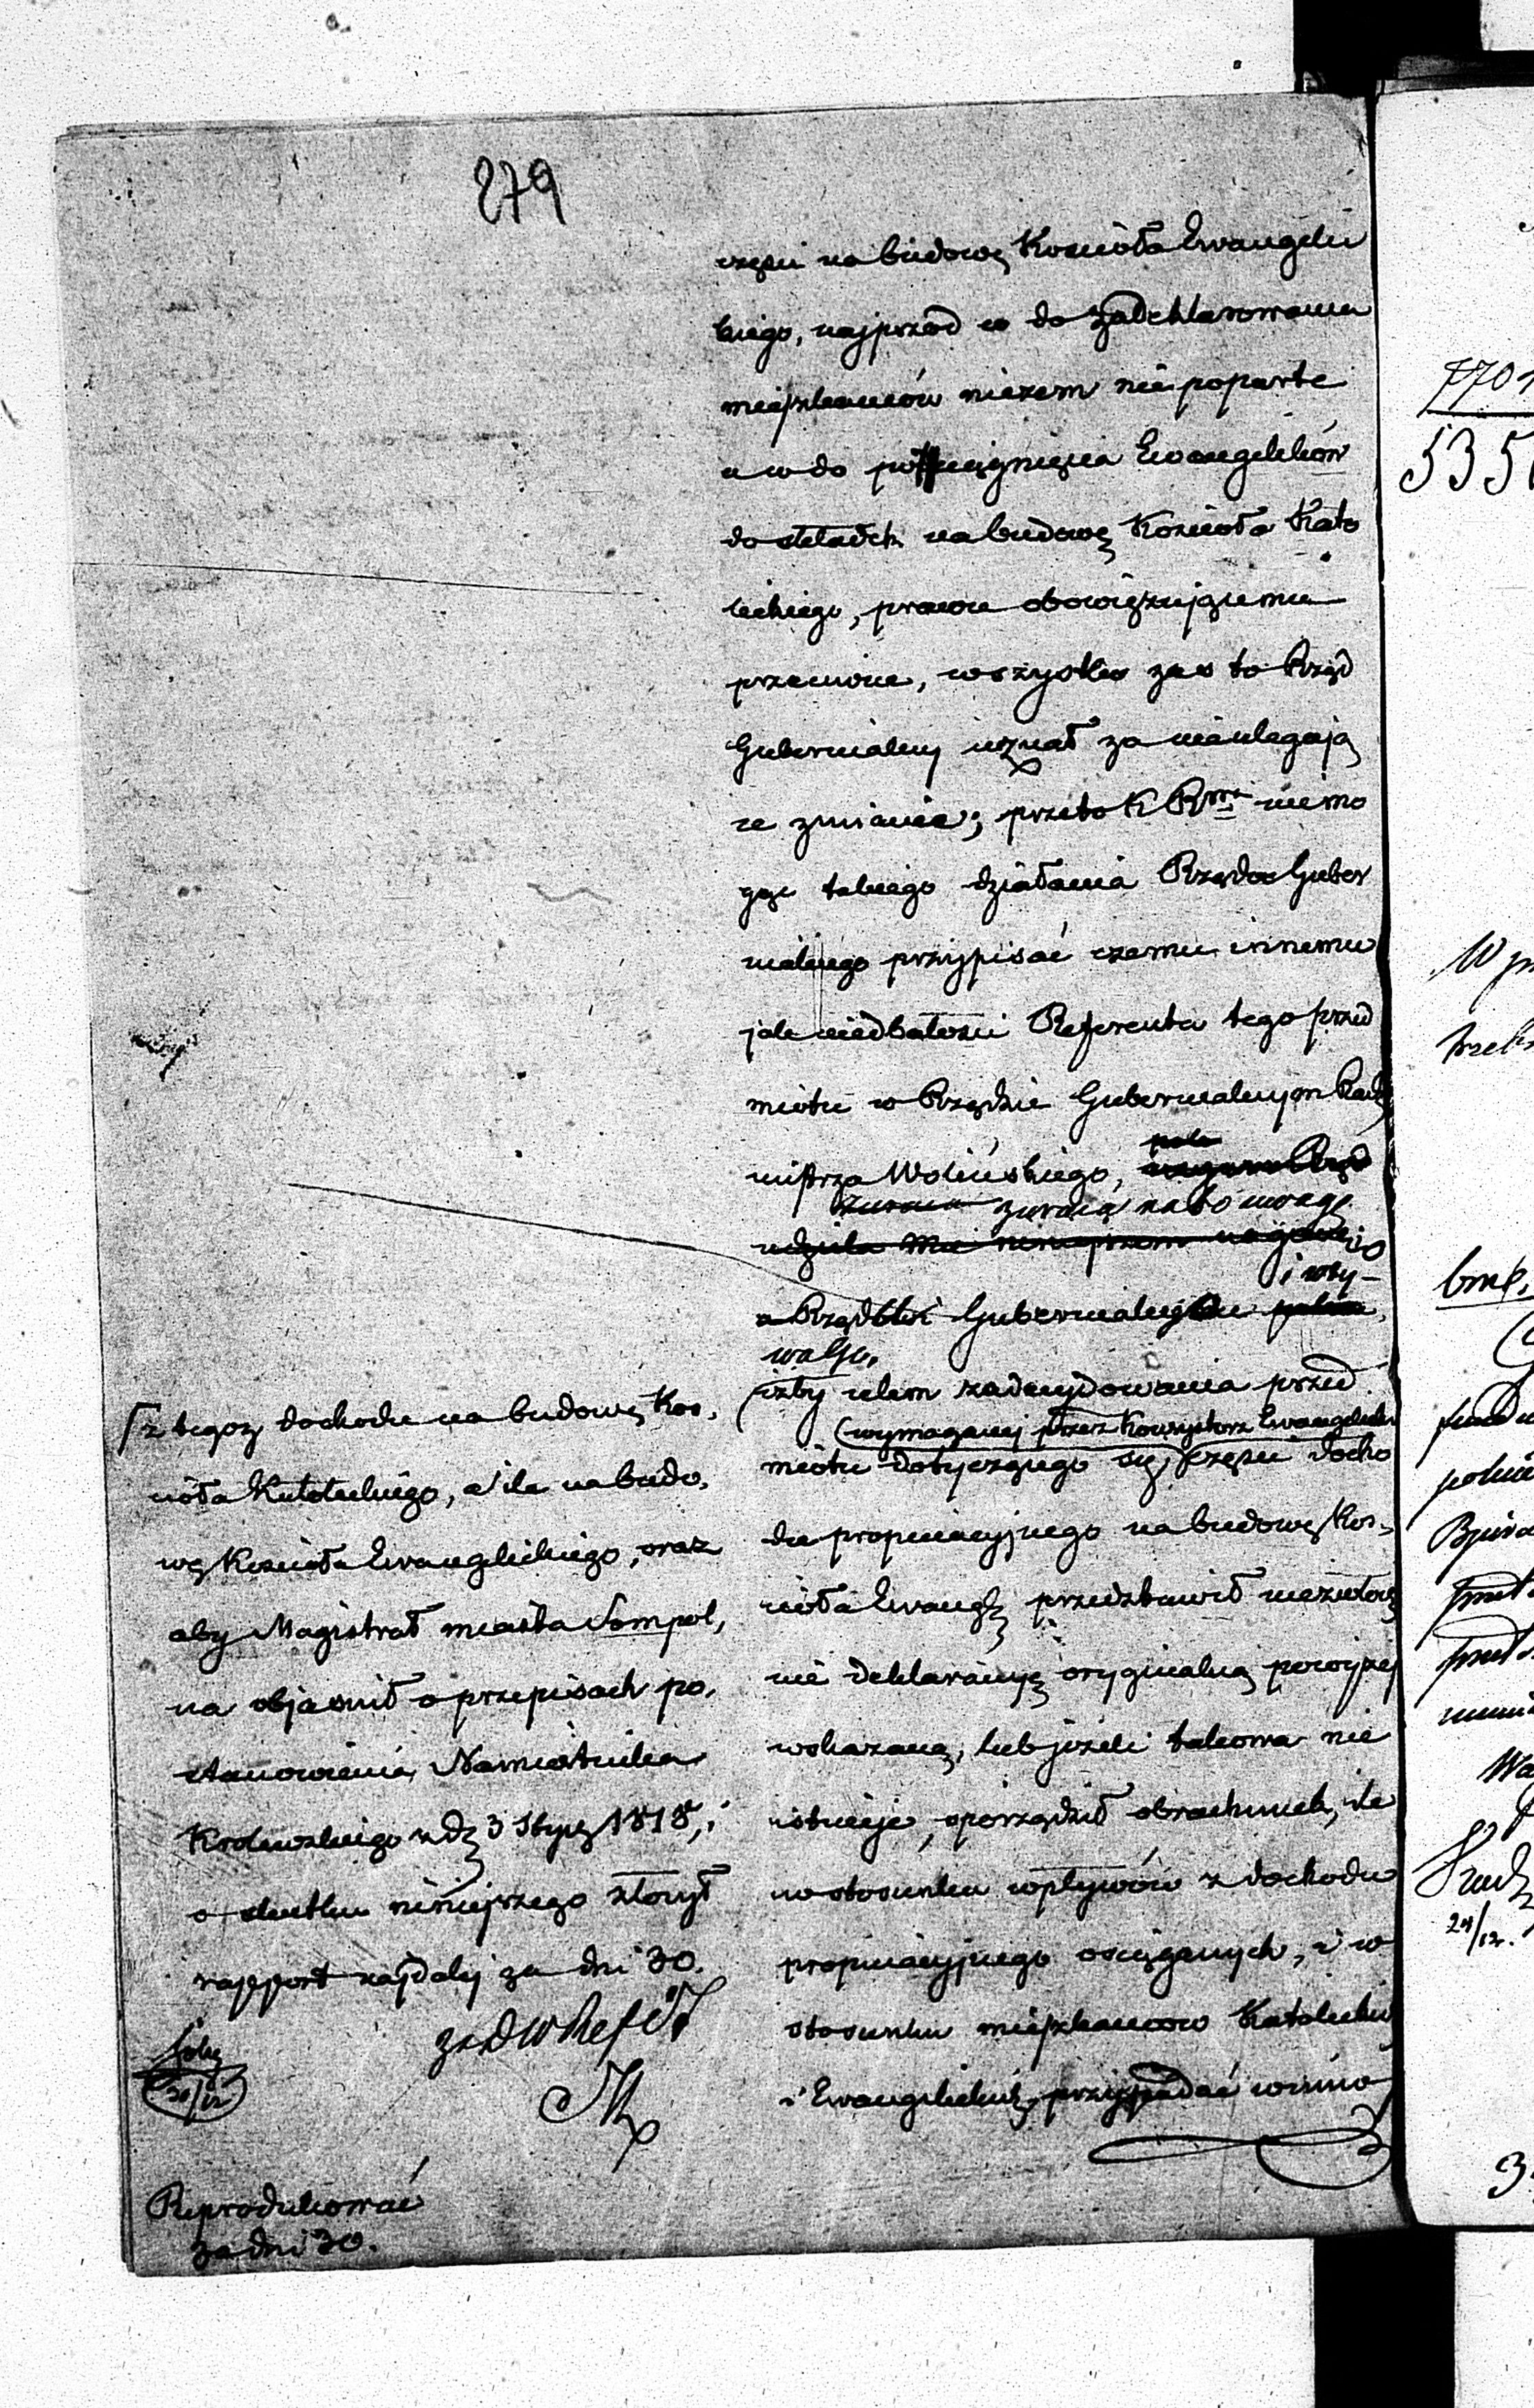 279
części na budowę Kościoła Ewangelic
kiego, najprzód co do zadeklarowania
mieszkańców niczem nie poparte
a co do pociągnięcia Ewangelików
do składek na budowę Kościoła Kato
lickiego, prawu obowiązującemu
przeciwne, wszystko zaś to Rząd
Gubernialny uznał za nieulegają
ce zmianie; przeto K Rwa niemo
gąc takiego działania Rządu Guber
nialnego przypisać czemu innemu
jak niedbałości Referenta tego przed
miotu w Rządzie Gubernialnym Rach
mistrza Wolińskiego,
zwraca na to uwagę
i wzy-
Rządowi Gubernialnemu
wa Go,
iżby celem zadecydowania przed
(wymaganej przez Konsystorz Ewangelicki
miotu dotyczącego się części docho
du propinacyjnego na budowę Koś-
cioła Ewang. przedstawił niezwłocz
nie deklaracyę oryginalną powyżej
wskazaną, lub jeżeli takowa nie
istnieje, sporządził obrachunek, ile
w stosunku wpływów z dochodu
propinacyjnego osiąganych, i w
stosunku mieszkańców Katolickich
i Ewangelickich, przypadać winno
z tegoż dochodu na budowę Koś-
cioła Katolickiego, a ile na budo-
wę Kościoła Ewangelickiego, oraz
aby Magistrat miasta Sompol-
na objaśnił o przepisach po-
stanowienia Namiestnika
Królewskiego z d. 3 Stycz 1818, i
o skutku niniejszego złożył
rapport najdalej za dni 30.
20/12
Reprodukować
za dni 30.
770
535
W p
24/12.
3